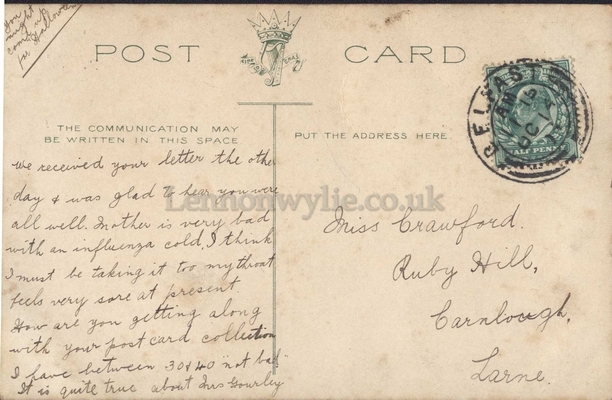 You
might
come up
for Halloween
POST CARD
THE COMMUNICATION MAY
BE WRITTEN IN THIS SPACE
PUT THE ADDRESS HERE.
BELFAST
HALF PENNY
We received your letter the other
day & was glad to hear you were
all well. Mother is very bad
with an influenza cold, I think
I must be taking it too my throat
feels very sore at present
How are you getting along
with your post card collection
I have between 30 & 40 "not bad"
It is quite true about Mrs Gourley
Miss Crawford.
Ruby Hill,
Carnlough,
Larne.
Lennonwylie.co.uk